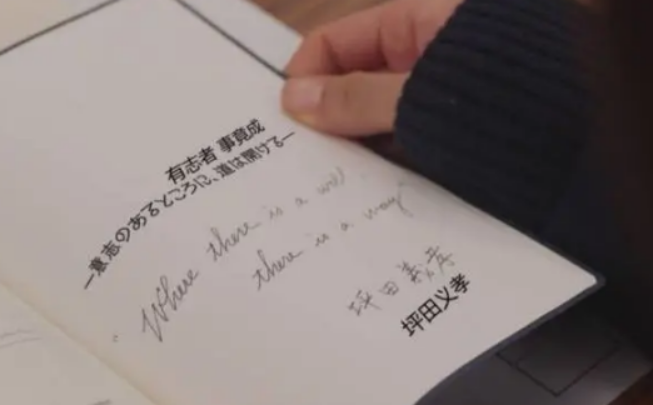 有志者 事竟成
—意志のあるところに、道は開ける—
"Where there is a will
there is a way"
坪田義孝
坪田义孝